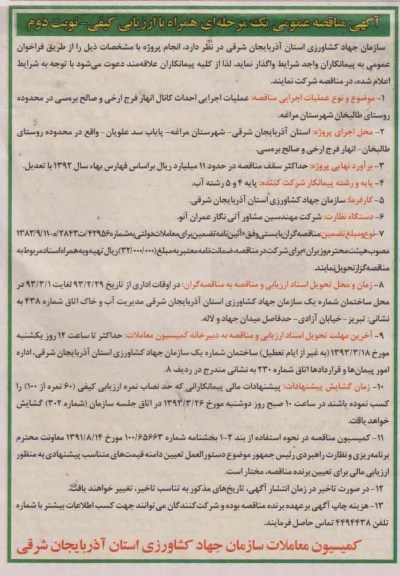 آگهی مناقصه عمومی یک مرحله‌ای همراه با ارزیابی کیفی- نوبت دوم
سازمان جهاد کشاورزی استان آذربایجان شرقی در نظر دارد، انجام پروژه با مشخصات ذیل را از طریق فراخوان
عمومی به پیمانکاران واجد شرایط واگذار نماید. لذا از کلیه پیمانکاران علاقه‌مند دعوت می‌شود با توجه به شرایط
اعلام شده، در مناقصه شرکت نمایند.
۱- موضوع و نوع عملیات اجرایی مناقصه: عملیات اجرایی احداث کانال انهار فرج ارخی و صالح برسی در محدوده
روستای طالبخان شهرستان مراغه.
۲- محل اجرای پروژه: استان آذربایجان شرقی- شهرستان مراغه- پایاب سد علویان- واقع در محدوده روستای
طالبخان- انهار فرج ارخی و صالح برسی.
۳- برآورد نهایی پروژه: حداکثر سقف مناقصه در حدود ۱۱ میلیارد ریال براساس فهارس بهاء سال ۱۳۹۲ با تعدیل.
۴- پایه و رشته پیمانکار شرکت کننده: پایه ۴ و ۵ رشته آب.
۵- کارفرما: سازمان جهاد کشاورزی استان آذربایجان شرقی.
۶- دستگاه نظارت: شرکت مهندسین مشاور آتی نگار عمران آتو.
۷- نوع و مبلغ تضمین: مناقصه‌گران بایستی وفق «آئین‌نامه تضمین برای معاملات دولتی به شماره ۴۲۹۵۶/ت۲۸۴۳ه-۱۳۸۲/۹/۱۱
مصوب هیئت محترم وزیران» برای شرکت در مناقصه، ضمانت‌نامه معتبر به مبلغ (۳۲/۰۰۰/۰۰۰) ریال تهیه و به همراه اسناد مربوط به
مناقصه‌گزار تحویل نمایند.
۸- زمان و محل تحویل اسناد ارزیابی و مناقصه به مناقصه‌گران: در اوقات اداری از تاریخ ۹۳/۲/۲۹ لغایت ۹۳/۳/۱ در
محل ساختمان شماره یک سازمان جهاد کشاورزی استان آذربایجان شرقی مدیریت آب و خاک اتاق شماره ۴۳۸ به
نشانی: تبریز- خیابان آزادی- حدفاصل میدان جهاد و لاله.
۹- آخرین مهلت تحویل اسناد ارزیابی و مناقصه به دبیرخانه کمیسیون معاملات: حداکثر تا ساعت ۱۴ روز یکشنبه
مورخ ۱۳۹۳/۳/۱۸ (به غیر از ایام تعطیل) ساختمان شماره یک سازمان جهاد کشاورزی استان آذربایجان شرقی، اداره
امور پیمان‌ها و قراردادها اتاق شماره ۲۳۰ به نشانی مندرج در ردیف ۸.
۱۰- زمان گشایش پیشنهادات: پیشنهادات مالی پیمانکارانی که حد نصاب نمره ارزیابی کیفی (۶۰ نمره از ۱۰۰) را
کسب نموده باشند در ساعت ۱۰ صبح روز دوشنبه مورخ ۱۳۹۳/۳/۲۶ در اتاق جلسه سازمان (شماره ۳۰۲) گشایش
خواهد یافت.
۱۱- کمیسیون مناقصه در نحوه استفاده از بند ۲-۱ بخشنامه شماره ۱۰۰/۶۵۶۶۳ مورخ ۱۳۹۱/۸/۱۴ معاونت محترم
برنامه‌ریزی و نظارت راهبردی رئیس جمهور موضوع دستورالعمل تعیین دامنه قیمت‌های متناسب پیشنهادی به منظور
ارزیابی مالی برای تعیین برنده مناقصه، مختار است.
۱۲- در صورت تاخیر در زمان انتشار آگهی، تاریخ‌های مذکور به تناسب تاخیر، تغییر خواهند یافت.
۱۳- هزینه چاپ آگهی برعهده برنده مناقصه بوده و شرکت‌کنندگان می‌توانند جهت کسب اطلاعات بیشتر با شماره
تلفن ۴۴۹۴۴۳۸ تماس حاصل فرمایند.
کمیسیون معاملات سازمان جهاد کشاورزی استان آذربایجان شرقی